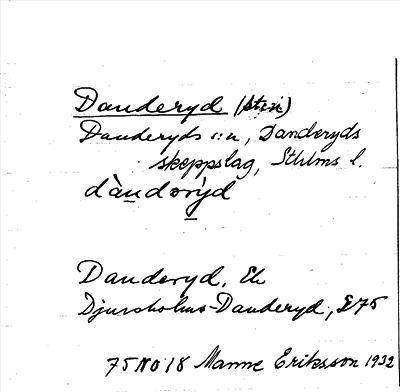 Danderyd (stn)
Danderyds s:n, Danderyds
skeppslag, Sthlms l.
dàndərýd
Danderyd, Ek
Djursholms-Danderyd, E75
75 NO 18 Manne Eriksson 1932